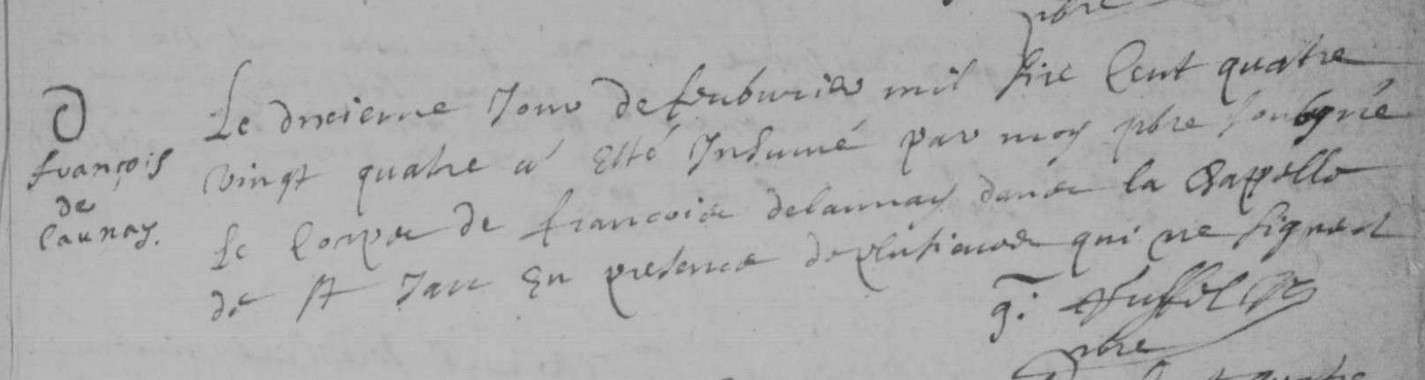 pbre
D
françois
de
Launay.
Le onzieme Jour de feubvrier mil sixe Cent quatre
vingt quatre a Esté Inhumé par moy pbre soubsigné
Le Corps de francois delaunay dans la Chappelle
de St Jan En presence de plusieurs qui ne signent
g:
pbre
quatre